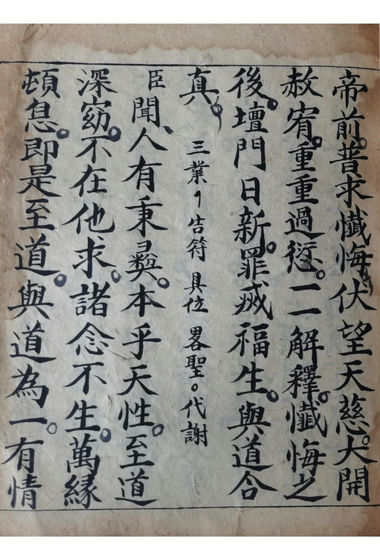 帝前。普求懺悔。伏望天慈。大開
赦宥。重重過愆。一一解釋。懺悔之
後。壇門日新。罪滅福生。與道合
真。
三業 告符 具位 畧聖。代謝
臣聞。人有秉彞。本乎天性。至道
深窈。不在他求。諸念不生。萬緣
頓息。即是至道。與道為一。有情